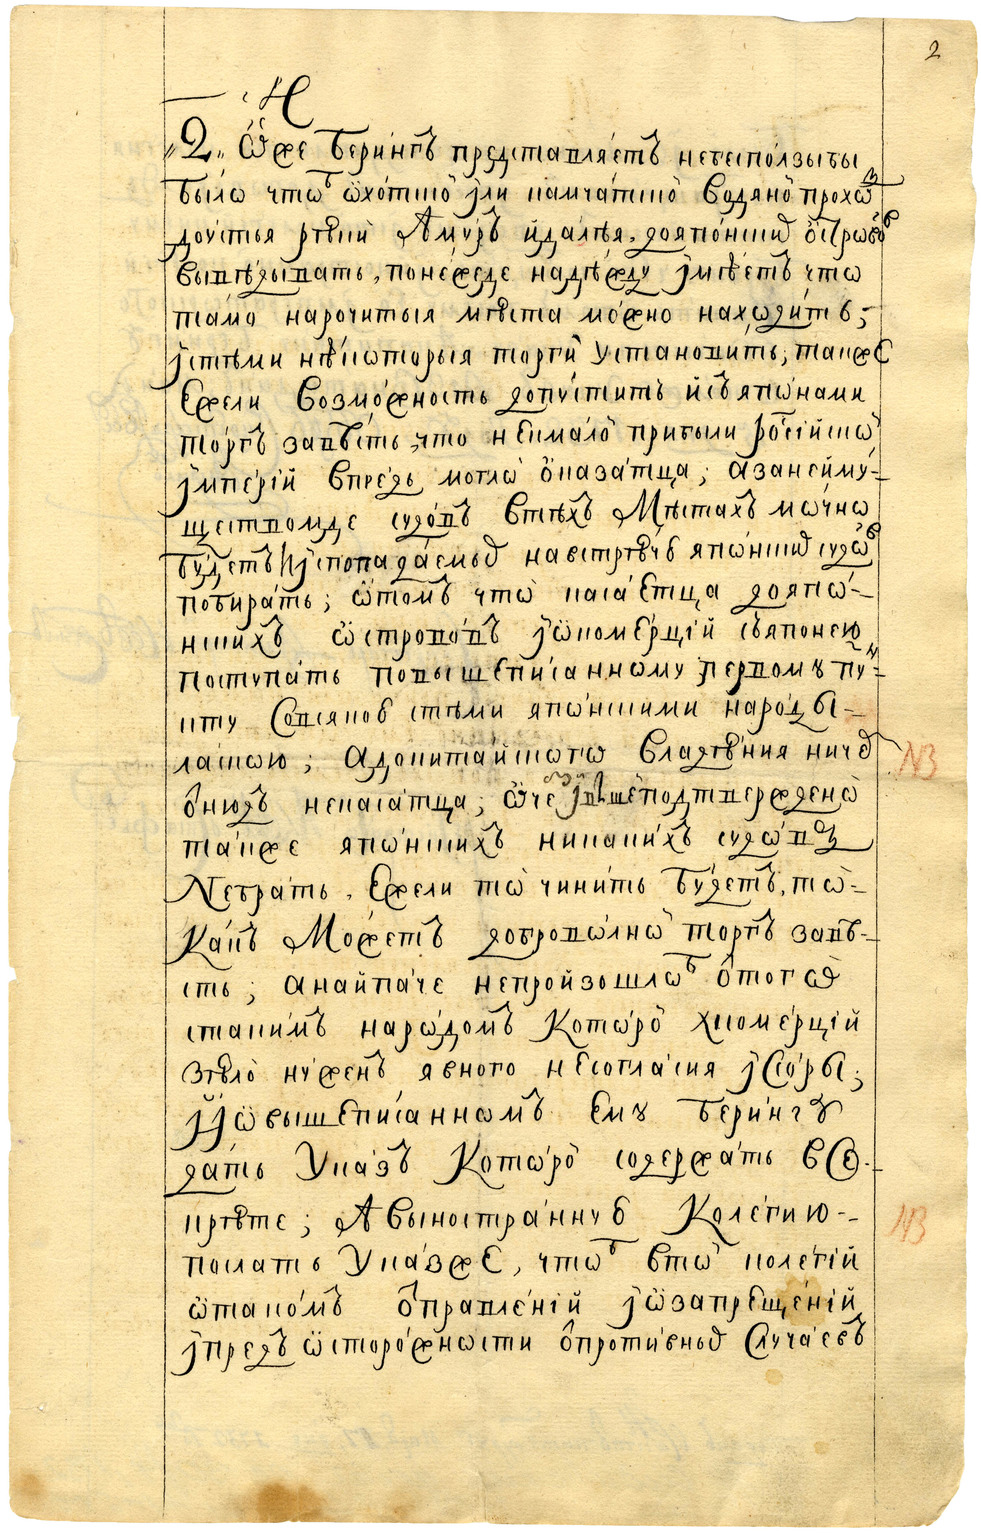 2
Н
„2„ Ѿже Берингъ представляетъ небесползыбы
было чтоб ѿхотско или камчатско водяно проход
доустья реки Амуръ идалѣя, дояпонских острововъ
вывѣдывать, понеже надежду имѣетъ что
тамо нарочитыя мѣста можно находить;
истѣми нѣкоторыя торги установить; также
Ежели возможность допуститъ исъяпонами
торгъ завѣсть, что немало прибыли росийско
империй впредь могло оказатца; азанеиму-
ществомже судовъ втѣхъ Мѣстахъ мочно
будетъ испопадаемых навстрѣчь японских судов
побирать; ѡтомъ что касаетца дояпо-
нскихъ острововъ икомерцій съяпонею
поступать повышеписанному первому пун-
кту Совсякою стѣми японскими народы
ласкою; адокитайскаго владѣния ничем
онюдь некасатца; ѡче и выше подтверждено
также японскихъ никакихъ судовъ
Небрать. Ежели то чинить будетъ, то-
Какъ Можетъ доброволно торгъ завѣ-
сть; анайпаче непроизошлоб отого
стакимъ народомъ которо хкомерцій
зѣло нуженъ явного несогласия иссоры;
И ѡвышеписанномъ Ему Берингу
дать Указъ Которо содержать всѣ-
крѣте; Авыностранную Колегию-
послать Указже, чтоб вто колегій
ѡтакомъ отправленій иѡзапрещеній
ипредъ ѡсторожности опротивных Случаевъ
N3
N3